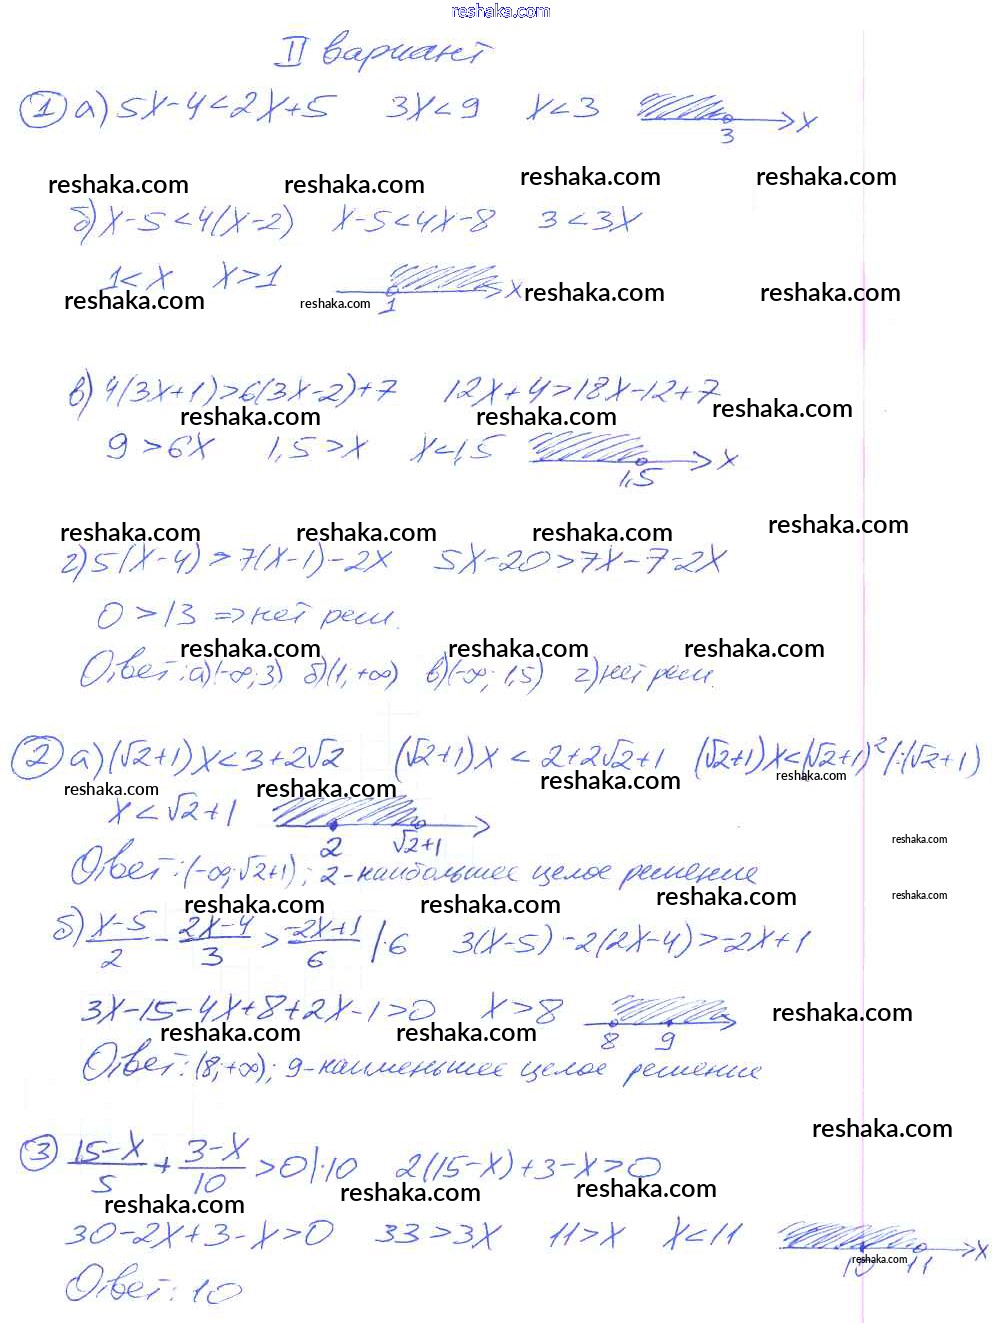 reshaka.com
II вариант
1 а) 5x-4<2x+5 3x<9 x<3 3 x
reshaka.com reshaka.com reshaka.com reshaka.com
б) x-5<4(x-2) x-5<4x-8 3<3x
1<x x>1 1 x
reshaka.com reshaka.com reshaka.com reshaka.com
в) 4(3x+1)>6(3x-2)+7 12x+4>18x-12+7
reshaka.com reshaka.com reshaka.com
9>6x 1,5>x x<1,5 1,5 x
reshaka.com reshaka.com reshaka.com reshaka.com
г) 5(x-4)>7(x-1)-2x 5x-20>7x-7-2x
0>13 => нет реш.
reshaka.com reshaka.com reshaka.com
Ответ: а)(-∞;3) б)(1,+∞) в)(-∞; 1,5) г) нет реш.
2 а) (√2+1)x<3+2√2 (√2+1)x < 2+2√2+1 (√2+1)x<(√2+1)² |:(√2+1)
reshaka.com reshaka.com reshaka.com reshaka.com
x<√2+1 2 √2+1
reshaka.com
Ответ: (-∞;√2+1); 2-наибольшее целое решение
reshaka.com reshaka.com reshaka.com reshaka.com
б) x-5/2 - 2x-4/3 > -2x+1/6 |·6 3(x-5)-2(2x-4)>-2x+1
3x-15-4x+8+2x-1>0 x>8 8 9
reshaka.com reshaka.com reshaka.com
Ответ: (8;+∞); 9-наименьшее целое решение
reshaka.com
3 15-x/5 + 3-x/10 >0|·10 2(15-x)+3-x>0
reshaka.com reshaka.com reshaka.com
30-2x+3-x>0 33>3x 11>x x<11 10 11 x
reshaka.com
Ответ: 10